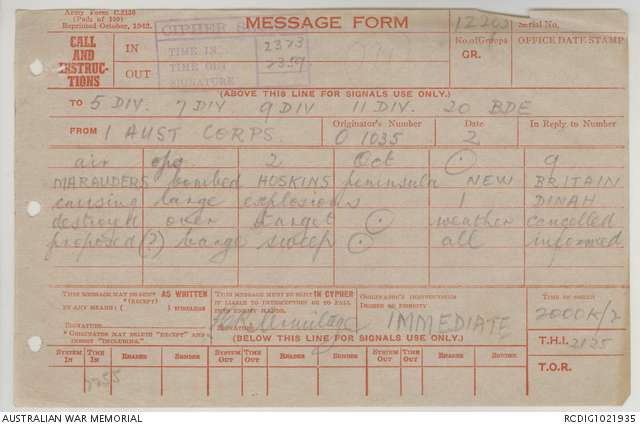 Army Form C.2136
(Pads of 100)
Reprinted October, 1942.
MESSAGE FORM
Serial No.
CALL AND INSTRUCTIONS
IN
OUT
CIPHER
TIME IN 2323
TIME OUT 2359
SIGNATURE
No. of Groups
GR.
OFFICE DATE STAMP
(ABOVE THIS LINE FOR SIGNALS USE ONLY.)
TO 5 DIV. 7 DIV 9 DIV 11 DIV. 20 BDE
FROM 1 AUST CORPS
Originator's Number
O 1035
Date
2
In Reply to Number
air opg 2 Oct . 9
MARAUDERS bombed HOSKINS peninsula NEW BRITAIN
causing large explosions 1 DINAH
destroyed over target . weather cancelled
proposed (?) barge sweep . all informed
THIS MESSAGE MAY BE SENT AS WRITTEN
(EXCEPT)
BY ANY MEANS: ( ) WIRELESS
SIGNATURE
* ORIGINATOR MAY DELETE "EXCEPT" AND
INSERT "INCLUDING."
THIS MESSAGE MUST BE SENT IN CYPHER
IF LIABLE TO INTERCEPTION OR TO FALL
INTO ENEMY HANDS.
SIGNATURE
ORIGINATOR'S INSTRUCTIONS
DEGREE OF PRIORITY
IMMEDIATE
TIME OF ORIGIN
2000K/2
T.H.I. 2125
T.O.R.
(BELOW THIS LINE FOR SIGNALS USE ONLY.)
SYSTEM IN TIME IN READER SENDER SYSTEM OUT TIME OUT READER SENDER SYSTEM OUT TIME OUT READER SENDER
2355
AUSTRALIAN WAR MEMORIAL
RCDIG1021935